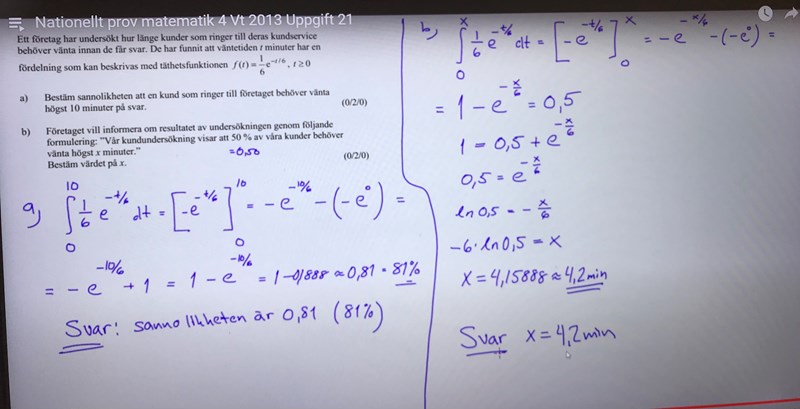 Nationellt prov matematik 4 Vt 2013 Uppgift 21
Ett företag har undersökt hur länge kunder som ringer till deras kundservice
behöver vänta innan de får svar. De har funnit att väntetiden t minuter har en
fördelning som kan beskrivas med täthetsfunktionen f(t) = 1/6 e^(-t/6), t ≥ 0
a) Bestäm sannolikheten att en kund som ringer till företaget behöver vänta
högst 10 minuter på svar. (0/2/0)
b) Företaget vill informera om resultatet av undersökningen genom följande
formulering: "Vår kundundersökning visar att 50 % av våra kunder behöver
vänta högst x minuter."
=0,50
Bestäm värdet på x. (0/2/0)
a) ∫₀¹⁰ 1/6 e^(-t/6) dt = [-e^(-t/6)]₀¹⁰ = -e^(-10/6) - (-e⁰) =
= -e^(-10/6) + 1 = 1 - e^(-10/6) = 1-0,1888 ≈ 0,81 = 81%
Svar: sannolikheten är 0,81 (81%)
b) ∫₀ˣ 1/6 e^(-t/6) dt = [-e^(-t/6)]₀ˣ = -e^(-x/6) - (-e⁰) =
= 1 - e^(-x/6) = 0,5
1 = 0,5 + e^(-x/6)
0,5 = e^(-x/6)
ln 0,5 = - x/6
-6 · ln 0,5 = x
x = 4,15888 ≈ 4,2 min
Svar x = 4,2 min